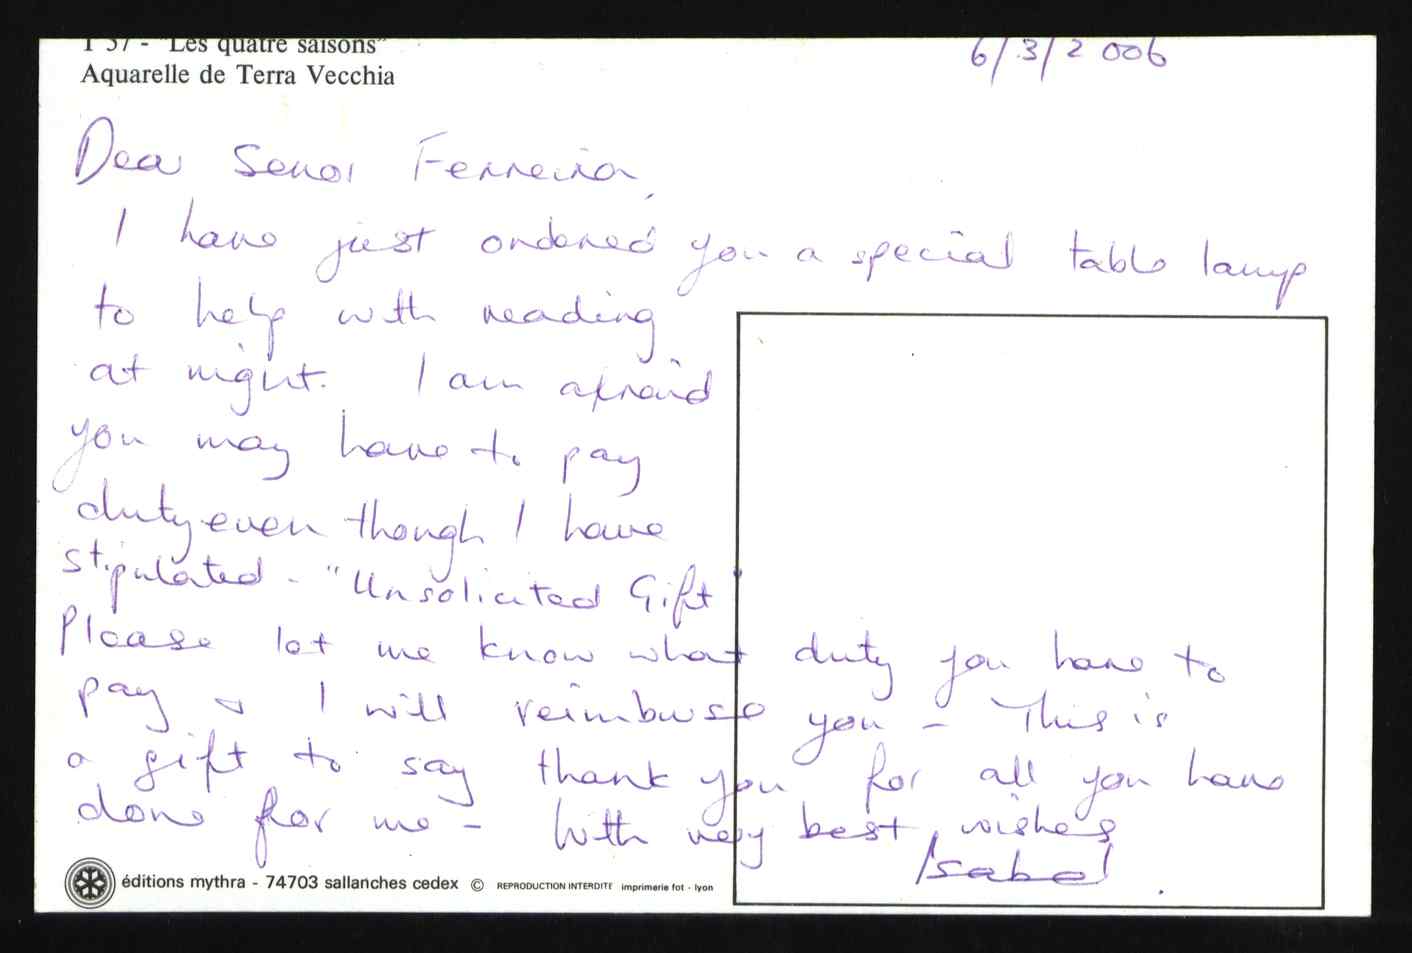 T 57 - "Les quatre saisons"
Aquarelle de Terra Vecchia
6/3/2006
Dear Senor Ferreira,
I have just ordered you a special table lamp
to help with reading
at night. I am afraid
you may have to pay
duty even though I have
stipulated - "Unsolicited Gift
Please let me know what duty you have to
pay & I will reimburse you - This is
a gift to say thank you for all you have
done for me - With very best wishes
Isabel.
éditions mythra - 74703 sallanches cedex © REPRODUCTION INTERDITE imprimerie fot - lyon